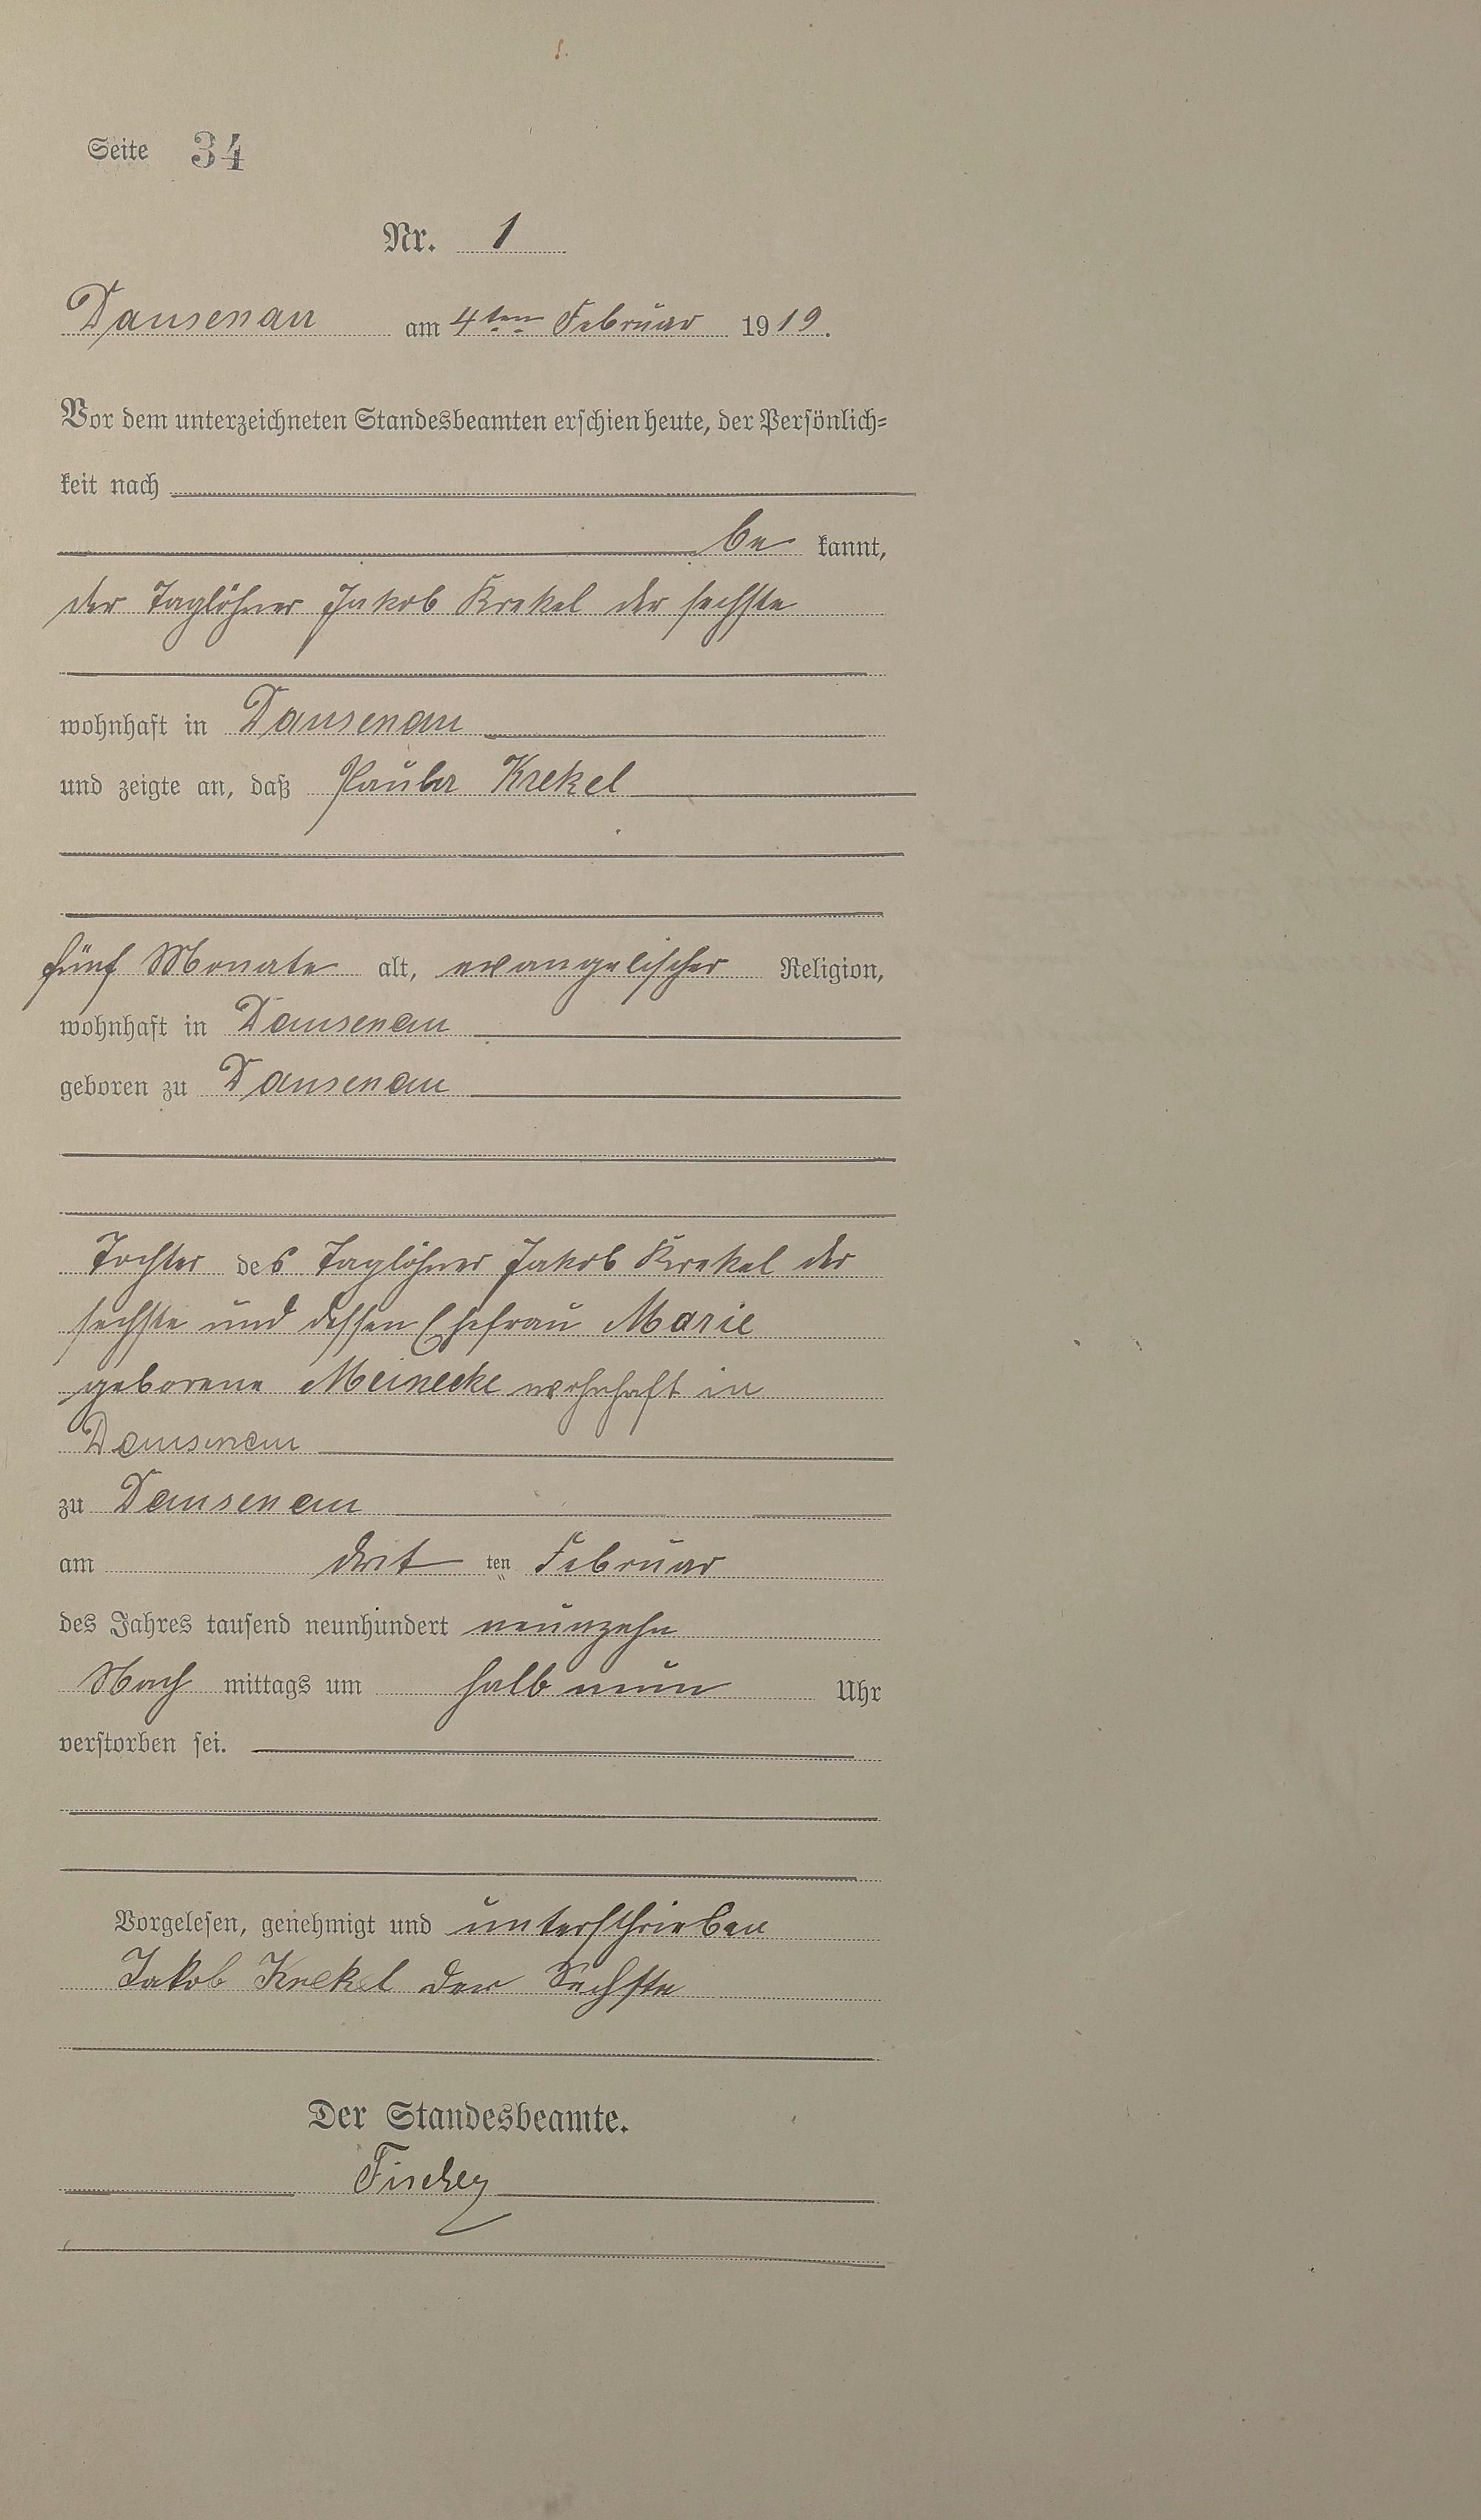 Seite 34
Nr. 1
Dausenau am 4ten Februar 1919.
Vor dem unterzeichneten Standesbeamten erschien heute, der Persönlich-
keit nach
be kannt,
der Taglöhner Jakob Krekel der sechste
wohnhaft in Dausenau
und zeigte an, daß Paula Krekel
fünf Monate alt, evangelischer Religion,
wohnhaft in Dausenau
geboren zu Dausenau
Tochter des Taglöhner Jakob Krekel der
sechste und dessen Ehefrau Marie
geborene Meinecke wohnhaft in
Dausenau
zu Dausenau
am dritten Februar
des Jahres tausend neunhundert neunzehn
Nach mittags um halb neun Uhr
verstorben sei.
Vorgelesen, genehmigt und unterschrieben
Jakob Krekel der Sechste
Der Standesbeamte.
Fischer